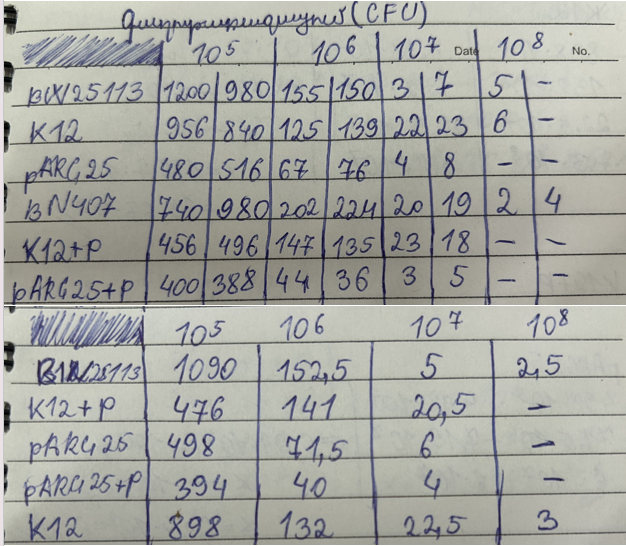 (CFU)
10⁵ 10⁶ 10⁷ Date 10⁸ No.
BW25113 1200 980 155 150 3 7 5 -
K12 956 840 125 139 22 23 6 -
pARG25 480 516 67 76 4 8 - -
BN407 740 980 202 224 20 19 2 4
K12+P 456 496 147 135 23 18 - -
pARG25+P 400 388 44 36 3 5 - -
10⁵ 10⁶ 10⁷ 10⁸
25113 1090 152,5 5 2,5
K12+P 476 141 20,5 -
pARG25 498 71,5 6 -
pARG25+P 394 40 4 -
K12 898 132 22,5 3